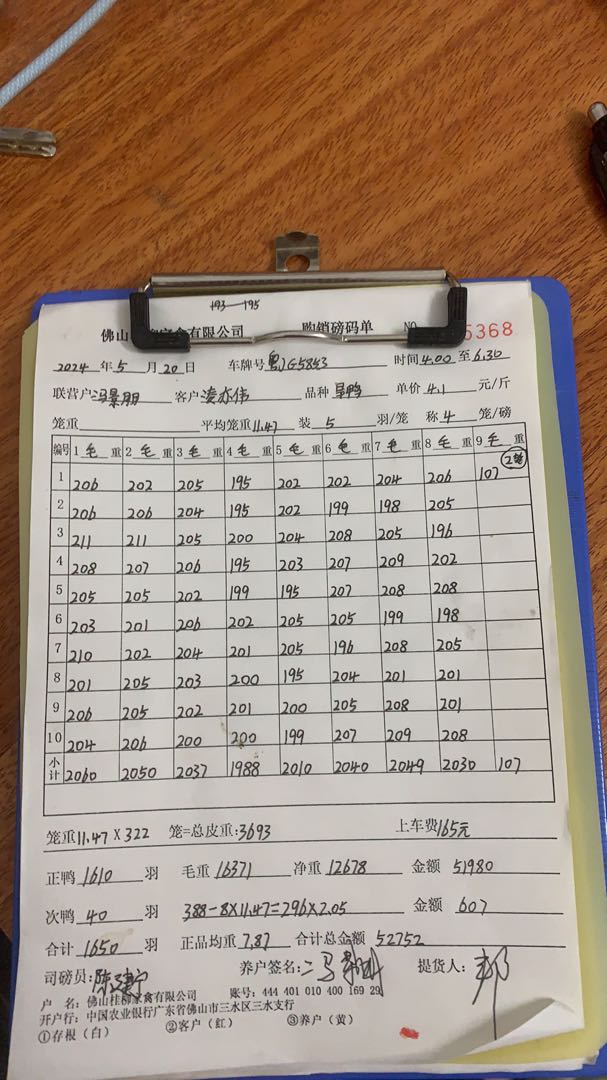 193—195
佛山 家禽有限公司 购销磅码单 NO 5368
2024 年 5 月 20 日 车牌号 粤JG5853 时间 4.00 至 6.30
联营户 冯景朋 客户 凌亦伟 品种 旱鸭 单价 4.1 元/斤
笼重 平均笼重 11.47 装 5 羽/笼 称 4 笼/磅
编号 1 毛 重 2 毛 重 3 毛 重 4 毛 重 5 毛 重 6 毛 重 7 毛 重 8 毛 重 9 毛 重
1 206 202 205 195 202 202 204 206 107 2笼
2 206 206 204 195 202 199 198 205
3 211 211 205 200 204 208 205 196
4 208 207 206 195 203 207 209 202
5 205 205 202 199 195 207 208 208
6 203 201 206 202 205 205 199 198
7 210 202 204 201 205 196 208 205
8 201 205 203 200 195 204 201 201
9 206 205 202 201 200 205 208 201
10 204 206 200 200 199 207 209 208
小计 2060 2050 2037 1988 2010 2040 2049 2030 107
笼重 11.47 X 322 笼=总皮重: 3693 上车费 165元
正鸭 1610 羽 毛重 16371 净重 12678 金额 51980
次鸭 40 羽 388-8X11.47=296X2.05 金额 607
合计 1650 羽 正品均重 7.87 合计总金额 52752
司磅员: 陈建宁 养户签名: 提货人:
户 名: 佛山桂柳家禽有限公司 账号: 444 401 010 400 169 29
开户行: 中国农业银行广东省佛山市三水区三水支行
①存根(白) ②客户(红) ③养户(黄)